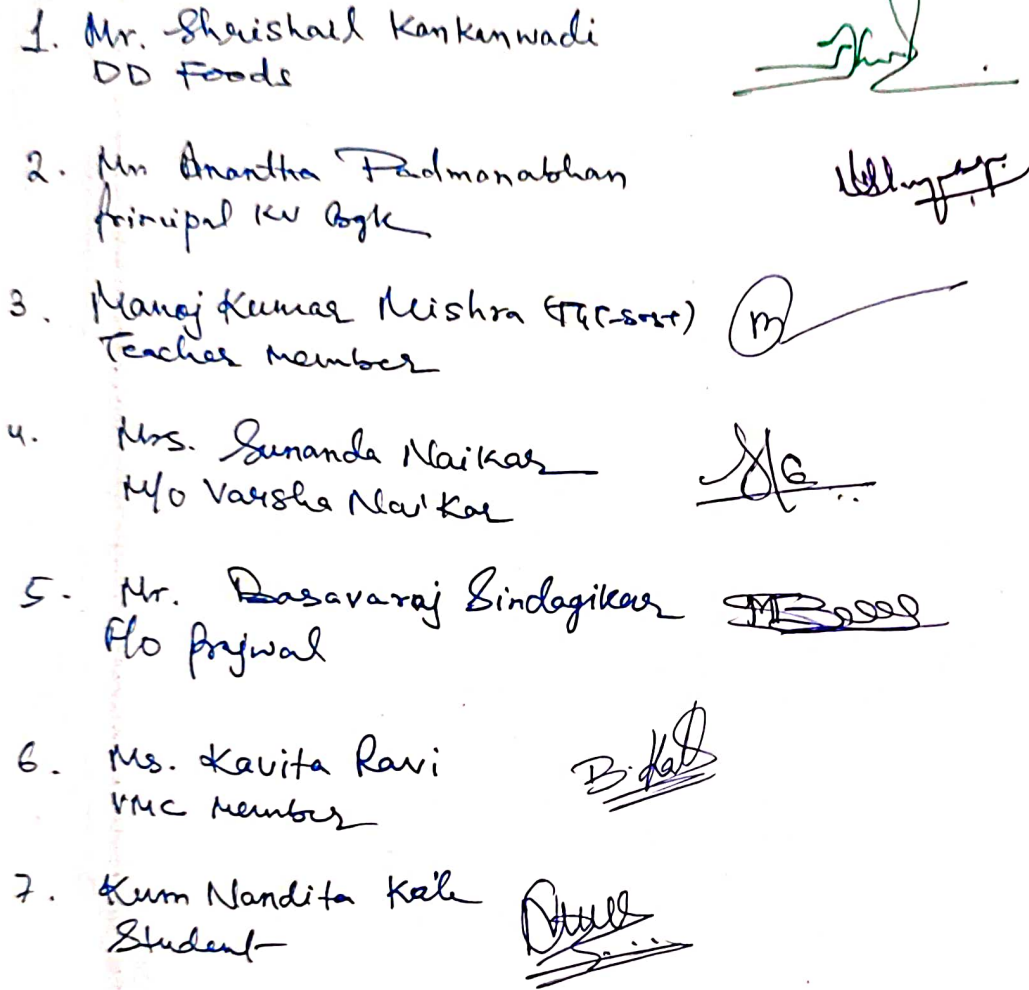 1. Mr. Shrishail Kankanwadi
DD Foods
2. Mr Anantha Padmanabhan
Principal KV Bgk
3. Manoj Kumar Mishra
Teacher Member
4. Mrs. Sunanda Naikar
M/o Varsha Naikar
5. Mr. Basavaraj Sindagikar
F/o Prajwal
6. Ms. Kavita Ravi
VMC Member
B. Kal
7. Kum Nandita
Student